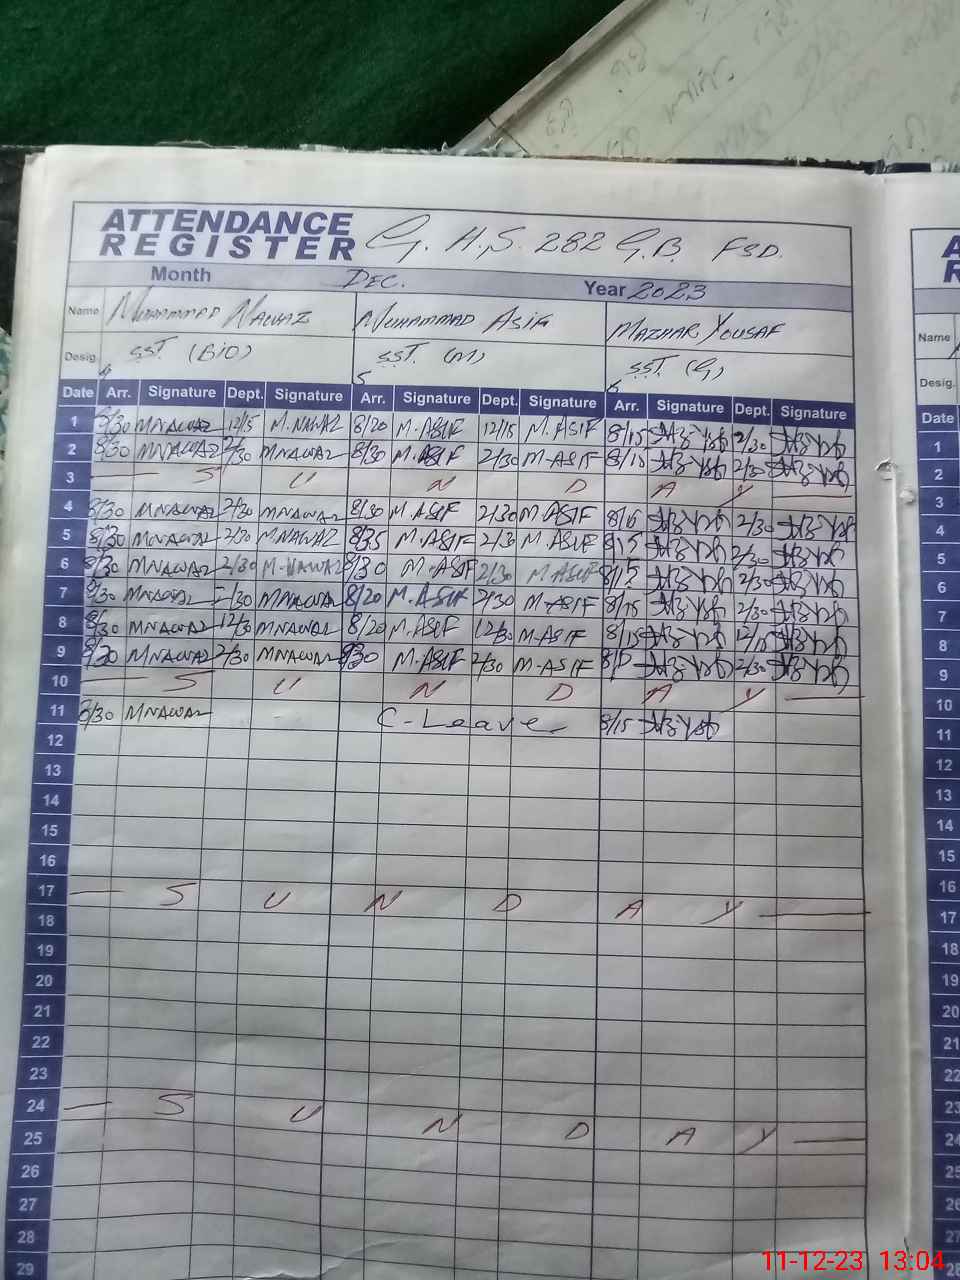 ATTENDANCE REGISTER G. H.S. 282 G.B. FSD.
Month DEC. Year 2023
Name MUHAMMAD NAWAZ MUHAMMAD ASIF MAZHAR YOUSAF
Desig. SST (BiO) SST. (M) SST (G)
4 5 6
Date Arr. Signature Dept. Signature Arr. Signature Dept. Signature Arr. Signature Dept. Signature
1 8/30 MNAWAZ 12/15 M.NAWAZ 8/20 M.ASIF 12/15 M.ASIF 8/15 12/30
2 8/30 MNAWAZ 2/30 MNAWAZ 8/30 M.ASIF 2/30 M-ASIF 8/15 2/30
3 — S U N D A Y —
4 8/30 MNAWAZ 2/30 MNAWAZ 8/30 M.ASIF 2/30 M.ASIF 8/16 2/30
5 8/30 MNAWAZ 2/30 MNAWAZ 8/35 M.ASIF 2/30 M.ASIF 8/15 2/30
6 8/30 MNAWAZ 2/30 M.NAWAZ 8/30 M.ASIF 2/30 M.ASIF 8/15 2/30
7 8/30 MNAWAZ 2/30 MNAWAZ 8/20 M.ASIF 2/30 M-ASIF 8/15 2/30
8 8/30 MNAWAZ 12/30 MNAWAZ 8/20 M.ASIF 12/30 M-ASIF 8/15 12/15
9 8/30 MNAWAZ 2/30 MNAWAZ 8/30 M.ASIF 2/30 M-ASIF 2/30
10 — S U N D A Y —
11 8/30 MNAWAZ C-Leave 8/15
12
13
14
15
16
17 — S U N D A Y —
18
19
20
21
22
23
24 — S U N D A Y —
25
26
27
28
29
A
R
Name
Desig.
Date
1
2
3
4
5
6
7
8
9
10
11
12
13
14
15
16
17
18
19
20
21
22
23
24
25
26
27
28
11-12-23 13:04